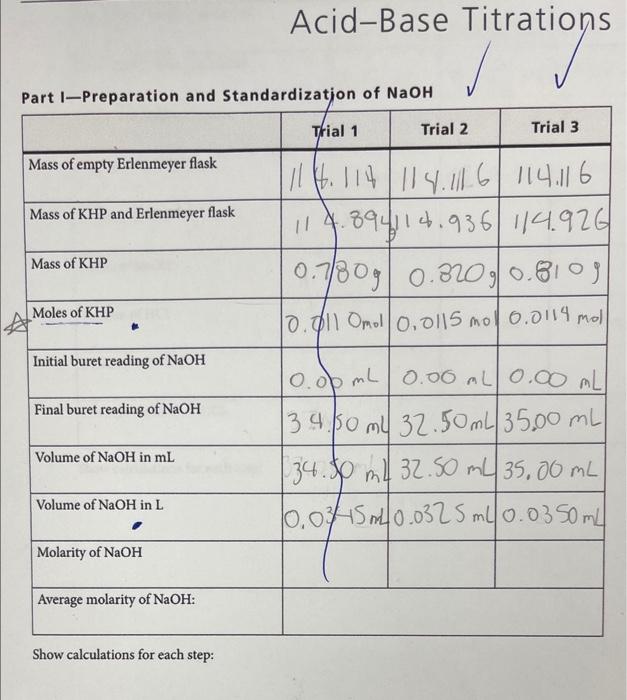 Acid–Base Titrations
Part I—Preparation and Standardization of NaOH
Trial 1 Trial 2 Trial 3
Mass of empty Erlenmeyer flask 114.114 114.116 114.116
Mass of KHP and Erlenmeyer flask 114.894 114.936 114.926
Mass of KHP 0.780g 0.820g 0.810g
Moles of KHP 0.0110mol 0.0115 mol 0.0114 mol
Initial buret reading of NaOH 0.00 mL 0.00 mL 0.00 mL
Final buret reading of NaOH 34.50 mL 32.50mL 35.00 mL
Volume of NaOH in mL 34.50 mL 32.50 mL 35.00 mL
Volume of NaOH in L 0.0345mL 0.0325 mL 0.0350mL
Molarity of NaOH
Average molarity of NaOH:
Show calculations for each step: